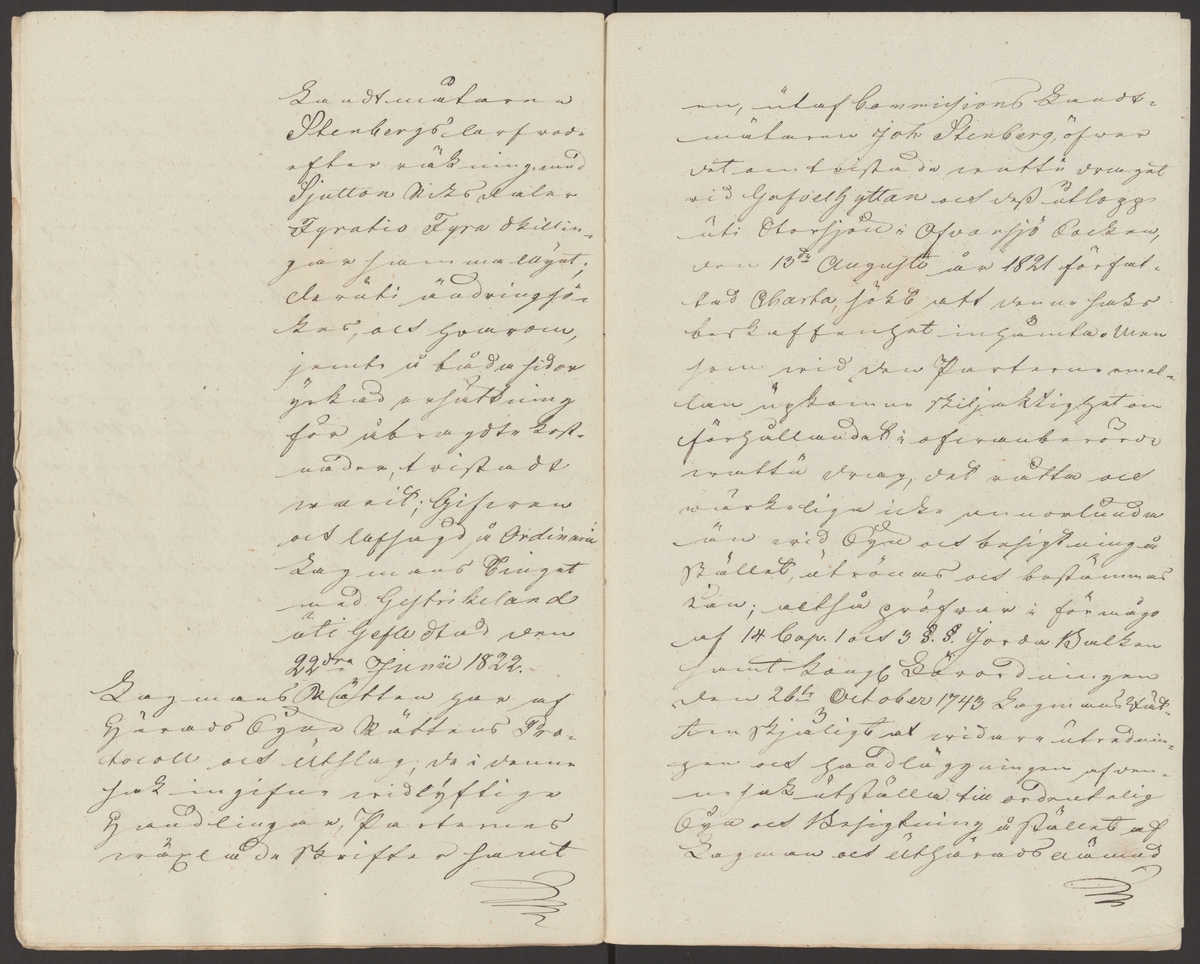 Landtmätaren
Stenbergs arfvode
efter räkning med
Sjutton Riksdaler
Fyratio Fyra skillin-
gar samma mynt;
deruti ändring sö-
kes, och hvarom,
jemte å båda sidor
yrkad ersättning
för åbragdte kost-
nader, tvistadt
varit; Gifven
och afsagd å Ordinarie
Lagmans Tinget
med Gestrikeland
uti Gefle Stad den
22dra Junii 1822.
Lagmans Rätten har af
Härads Syne Rättens Pro-
tocoll och Utslag, de i denne
sak ingifne vidlyftige
Handlingar, Parternes
växlade skrifter samt
en, utaf Commissions Landt-
mätaren Joh. Stenberg, öfver
det omtvistade vattu draget
vid Gafvelhyttan och dess utlopp
uti Storsjön i Ofvansjö Socken,
den 13de Augusti år 1821 författ-
tad Charta, sökt att denne saks
beskaffenhet inhämta. Men
som vid den Parterne emel-
lan upkomne skiljaktighet om
förhållandet i ofvanberörde
vattu drag, det rätta och
verkeliga icke annorlunda
än vid Syn och besigtning å
stället, utrönas och bestämmas
kan; altså pröfvar i förmågo
af 14 Cap. 1 och 3 §.§. Jorda Balken
samt Kongl. Förordningen
den 26te October 1743 Lagmans Rät-
ten skjäligt at vidare utrednin-
gen och handläggningen af den-
ne sak utställa till ordentelig
Syn och Besigtning å stället af
Lagman och Uthärads nämnd